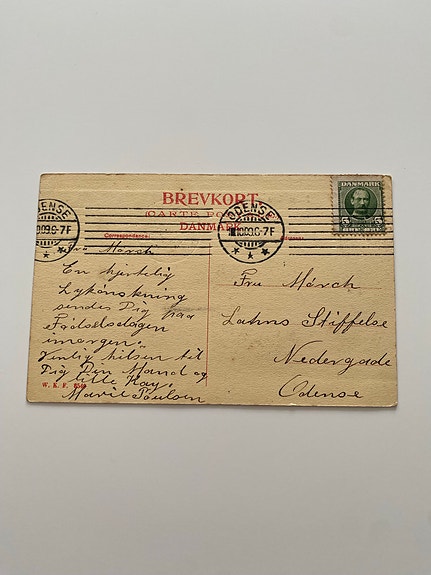 BREVKORT
CARTE PO
DANMARK
Correspondance:
DANMARK
5 5
ODENSE
ODENSE
Fru Mørch
En hjertelig
Lykønskning
sendes Dig paa
Fødselsdagen
imorgen.
Venlig hilsen til
Dig Din Mand og
lille Kay.
Marie Poulsen
W. K. F.
Fru Mørch
Lahns Stiftelse
Nedergade
Odense